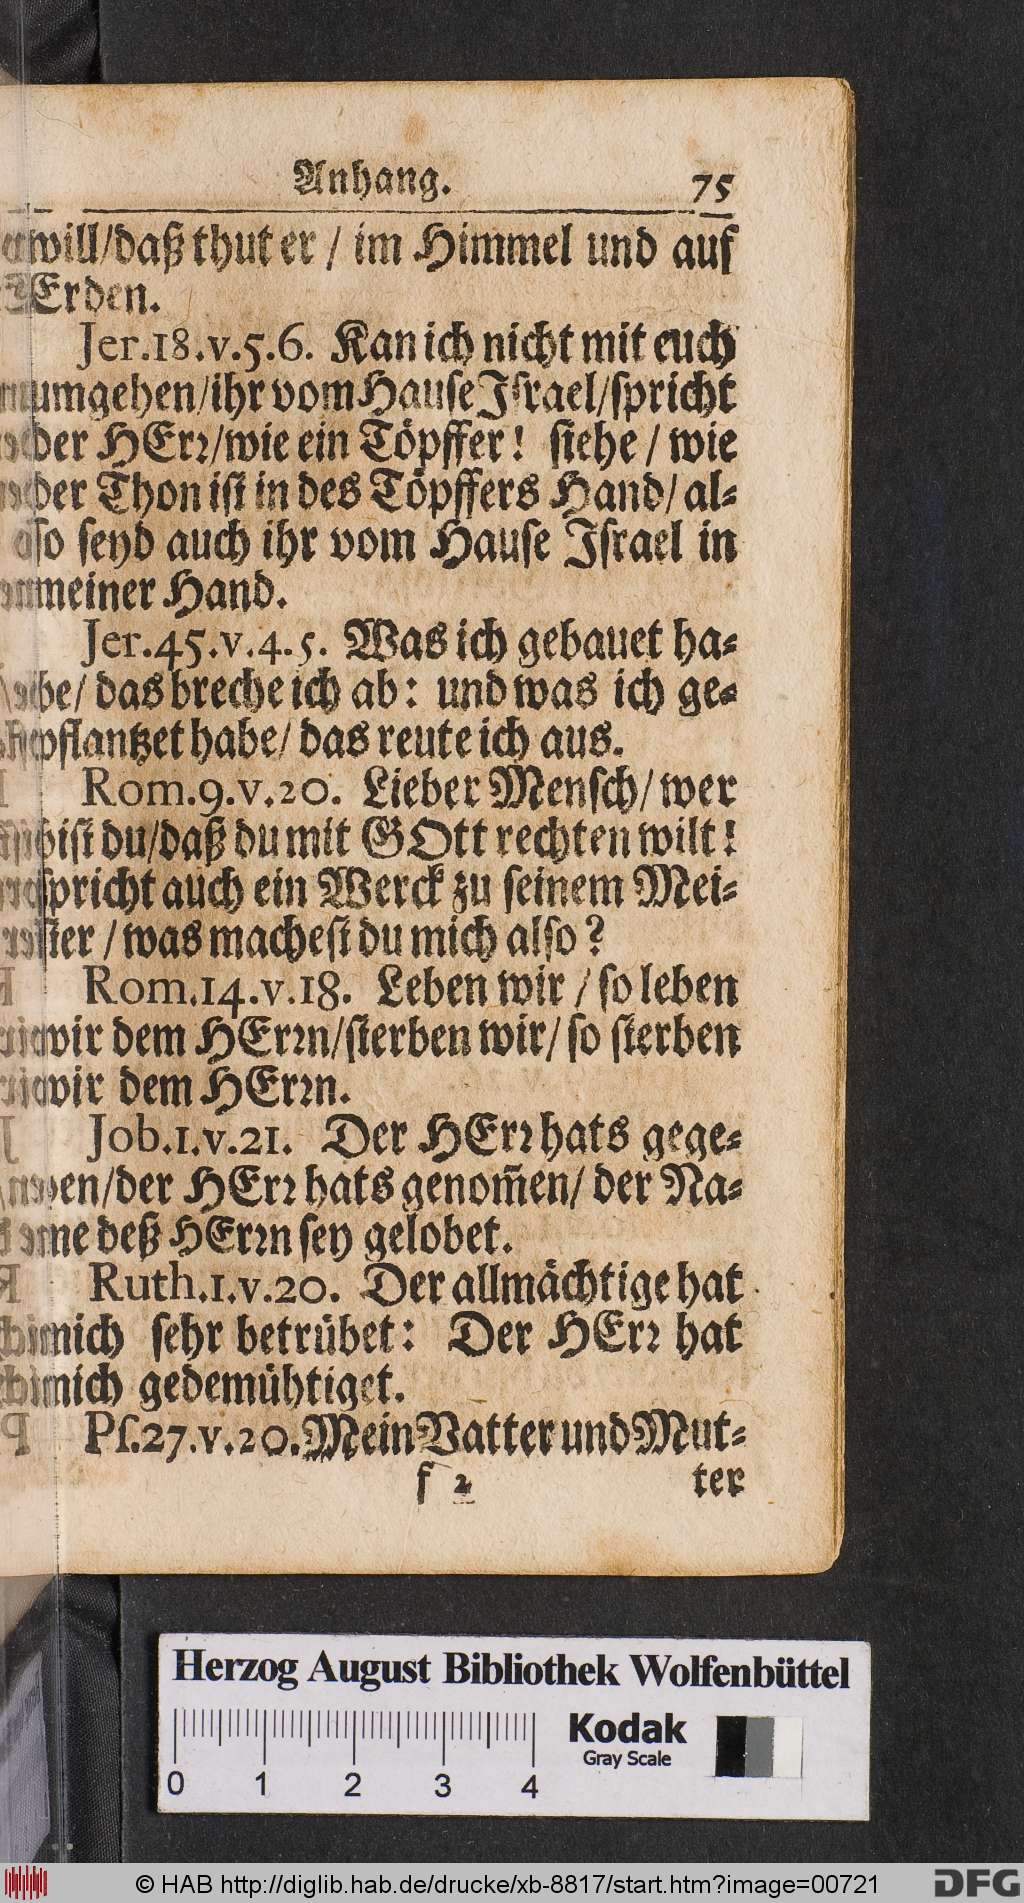 Anhang. 75
will/daß thut er / im Himmel und auf
Erden.
Jer.18.v.5.6. Kan ich nicht mit euch
umgehen/ihr vom Hause Israel/spricht
der HErꝛ/wie ein Töpffer! siehe / wie
der Thon ist in des Töpffers Hand/ al-
so seyd auch ihr vom Hause Israel in
meiner Hand.
Jer.45.v.4.5. Was ich gebauet ha-
be/ das breche ich ab: und was ich ge-
pflantzet habe/ das reute ich aus.
Rom.9.v.20. Lieber Mensch/ wer
bist du/daß du mit GOtt rechten wilt!
spricht auch ein Werck zu seinem Mei-
ster / was machest du mich also?
Rom.14.v.18. Leben wir / so leben
wir dem HErꝛn/sterben wir/ so sterben
wir dem HErꝛn.
Job.1.v.21. Der HErꝛ hats gege-
ben/der HErꝛ hats genom̃en/ der Na-
me deß HErꝛn sey gelobet.
Ruth.1.v.20. Der allmächtige hat
mich sehr betrübet: Der HErꝛ hat
mich gedemühtiget.
Ps.27.v.20. Mein Vatter und Mut-
f 2 ter
Herzog August Bibliothek Wolfenbüttel
Kodak
Gray Scale
0 1 2 3 4
© HAB http://diglib.hab.de/drucke/xb-8817/start.htm?image=00721
DFG